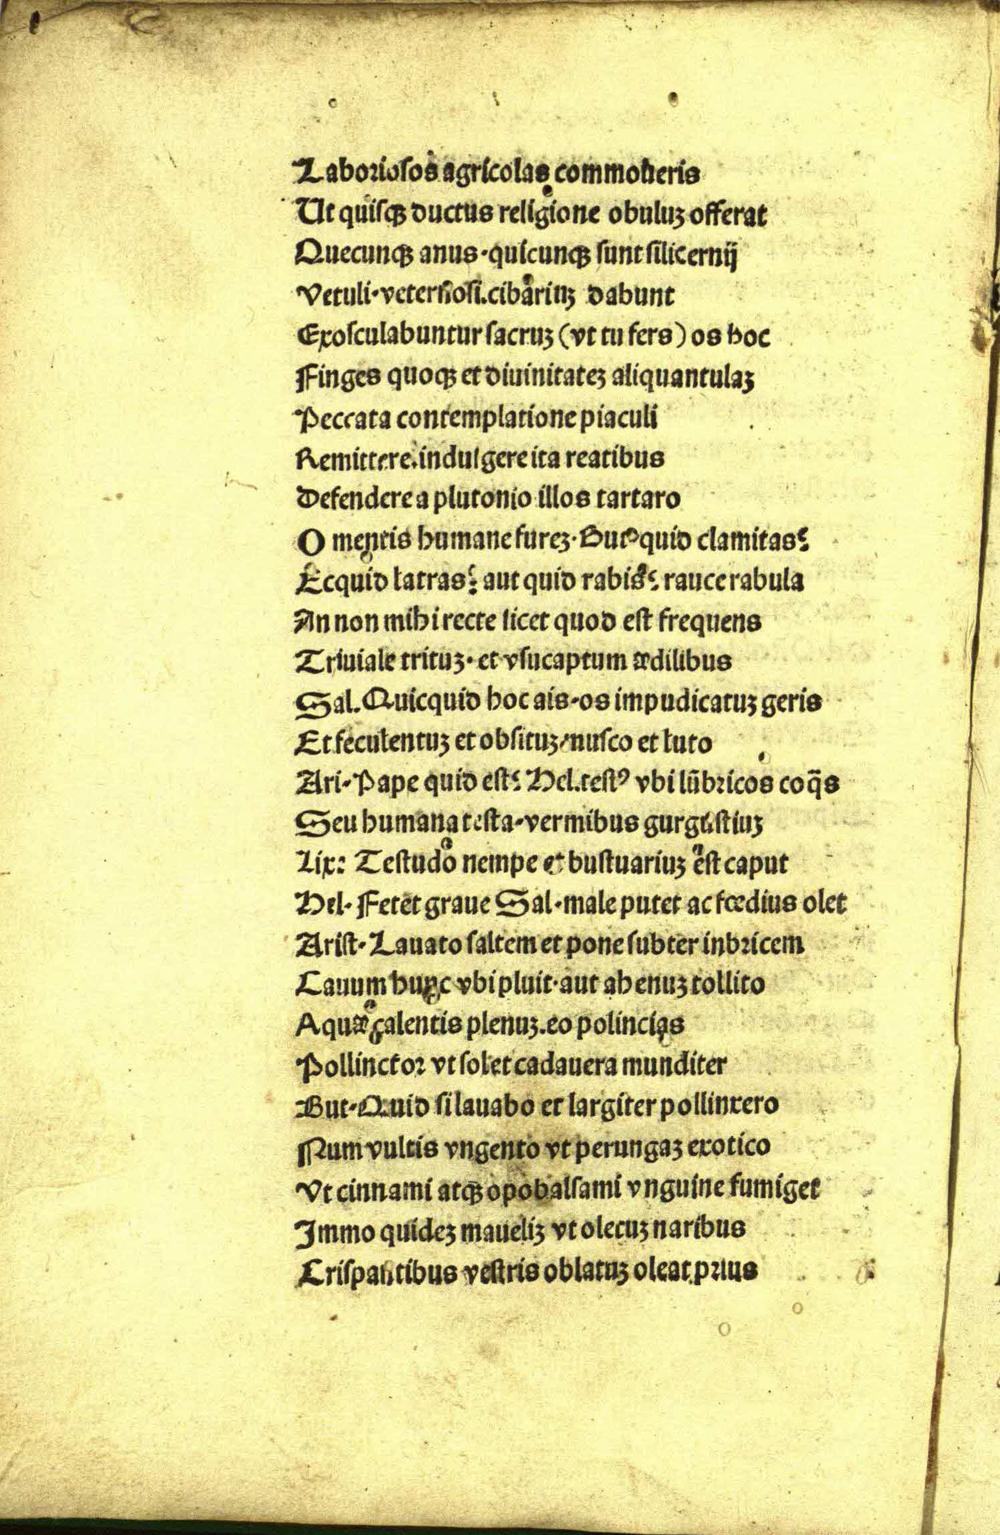 Laborioſos agricolas commoderis
Ut quiſqꝫ ductus religione obuluꝫ offerat
Quecunqꝫ anus · quicunqꝫ ſunt ſilicernij
Vetuli · veternoſi . cibariuꝫ dabunt
Exoſculabuntur ſacruꝫ (vt tu fers) os hoc
Finges quoqꝫ et diuinitateꝫ aliquantulaꝫ
Peccata contemplatione piaculi
Remittere . indulgere ita reatibus
Defendere a plutonio illos tartaro
O mentis humane fureꝫ · But⁹ quid clamitas?
Ecquid latras? aut quid rabis? rauce rabula
An non mihi recte licet quod eſt frequens
Triuiale trituꝫ · et vſucaptum ædilibus
Sal. Quicquid hoc ais · os impudicatuꝫ geris
Et feculentuꝫ et obſituꝫ muſco et luto
Ari · Pape quid eſt? Hel. teſt⁹ vbi lūbricos coq̄s
Seu humana teſta · vermibus gurguſtiuꝫ
Lix: Teſtudo nempe et buſtuariuꝫ eſt caput
Hel · Fetet graue Sal · male putet ac fœdius olet
Ariſt · Lauato ſaltem et pone ſubter inbricem
Cauum hunc vbi pluit · aut ahenuꝫ tollito
Aquæ calentis plenuꝫ . eo polincias
Pollinctor vt ſolet cadauera munditer
But · Quid ſi lauabo et largiter pollinxero
Num vultis vngento vt perungaꝫ exotico
Vt cinnami atqꝫ opobalſami vnguine fumiget
Immo quideꝫ maueliꝫ vt oletuꝫ naribus
Criſpantibus veſtris oblatuꝫ oleat prius